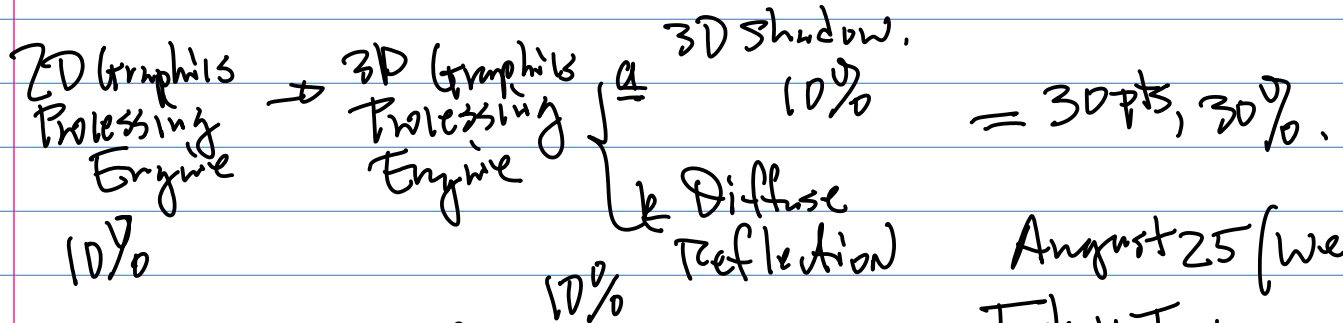 2D Graphics
Processing
Engine
10%
→ 3D Graphics
Processing
Engine
a
3D Shadow.
10%
b Diffuse
Reflection
10%
= 30pts, 30%.
August 25 (We